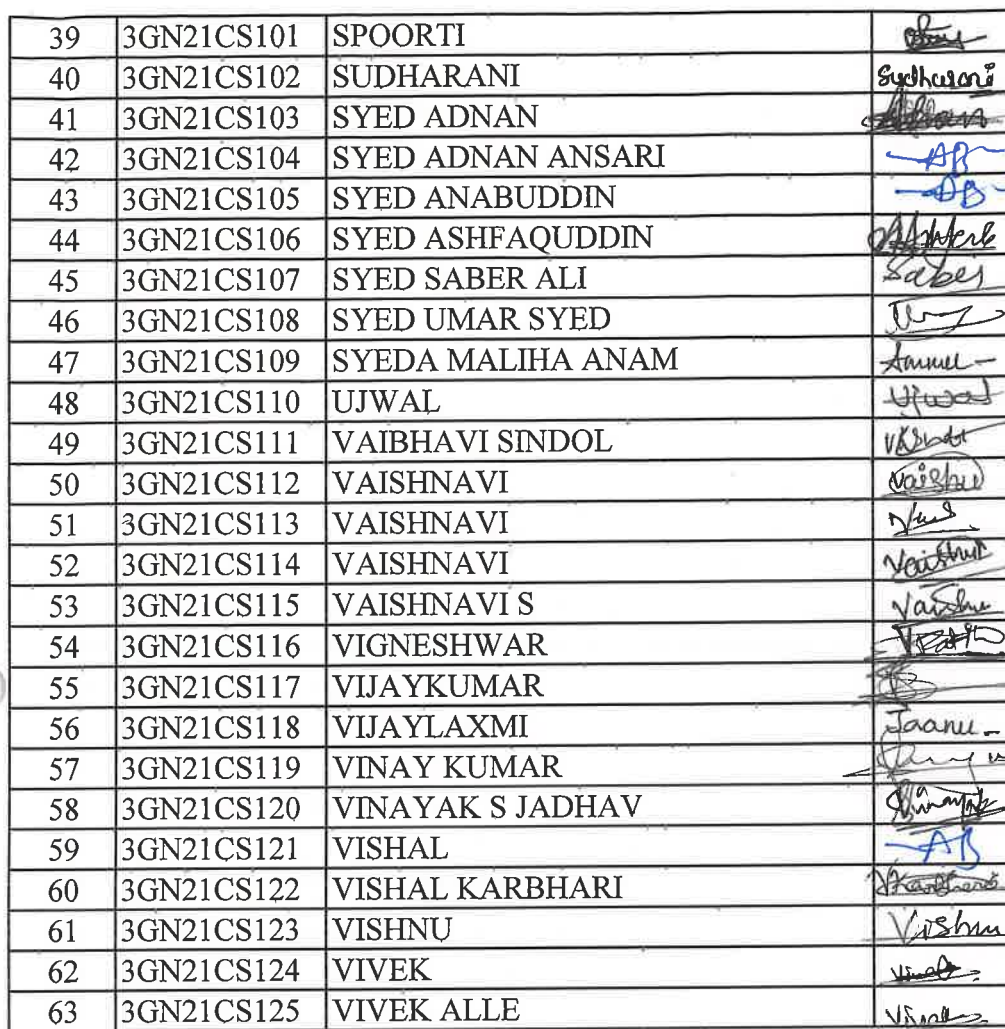 39 3GN21CS101 SPOORTI
40 3GN21CS102 SUDHARANI Sudharani
41 3GN21CS103 SYED ADNAN
42 3GN21CS104 SYED ADNAN ANSARI AB
43 3GN21CS105 SYED ANABUDDIN AB
44 3GN21CS106 SYED ASHFAQUDDIN
45 3GN21CS107 SYED SABER ALI Saber
46 3GN21CS108 SYED UMAR SYED
47 3GN21CS109 SYEDA MALIHA ANAM
48 3GN21CS110 UJWAL Ujwal
49 3GN21CS111 VAIBHAVI SINDOL
50 3GN21CS112 VAISHNAVI Vaishu
51 3GN21CS113 VAISHNAVI
52 3GN21CS114 VAISHNAVI
53 3GN21CS115 VAISHNAVI S Vaishu
54 3GN21CS116 VIGNESHWAR
55 3GN21CS117 VIJAYKUMAR
56 3GN21CS118 VIJAYLAXMI Jaanu
57 3GN21CS119 VINAY KUMAR
58 3GN21CS120 VINAYAK S JADHAV
59 3GN21CS121 VISHAL AB
60 3GN21CS122 VISHAL KARBHARI
61 3GN21CS123 VISHNU
62 3GN21CS124 VIVEK
63 3GN21CS125 VIVEK ALLE